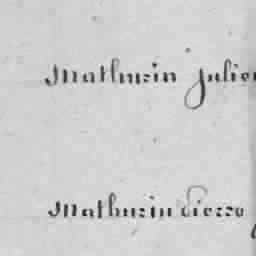 Mathurin Julien
Mathurin Pierre